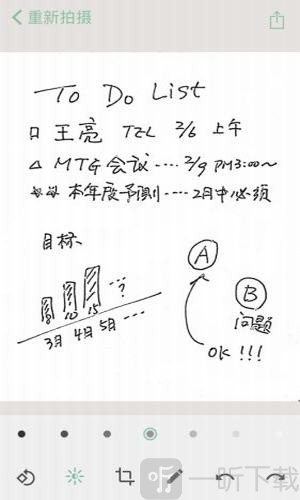 重新拍摄
To Do List
口 王亮 TEL 2/6 上午
△ MTG 会议···· 2/9 PM3:00~
本年度予测···· 2月中必须
目标
A
···?
B
8 10 15
问题
3月 4月 5月 ···
OK !!!
一听下载